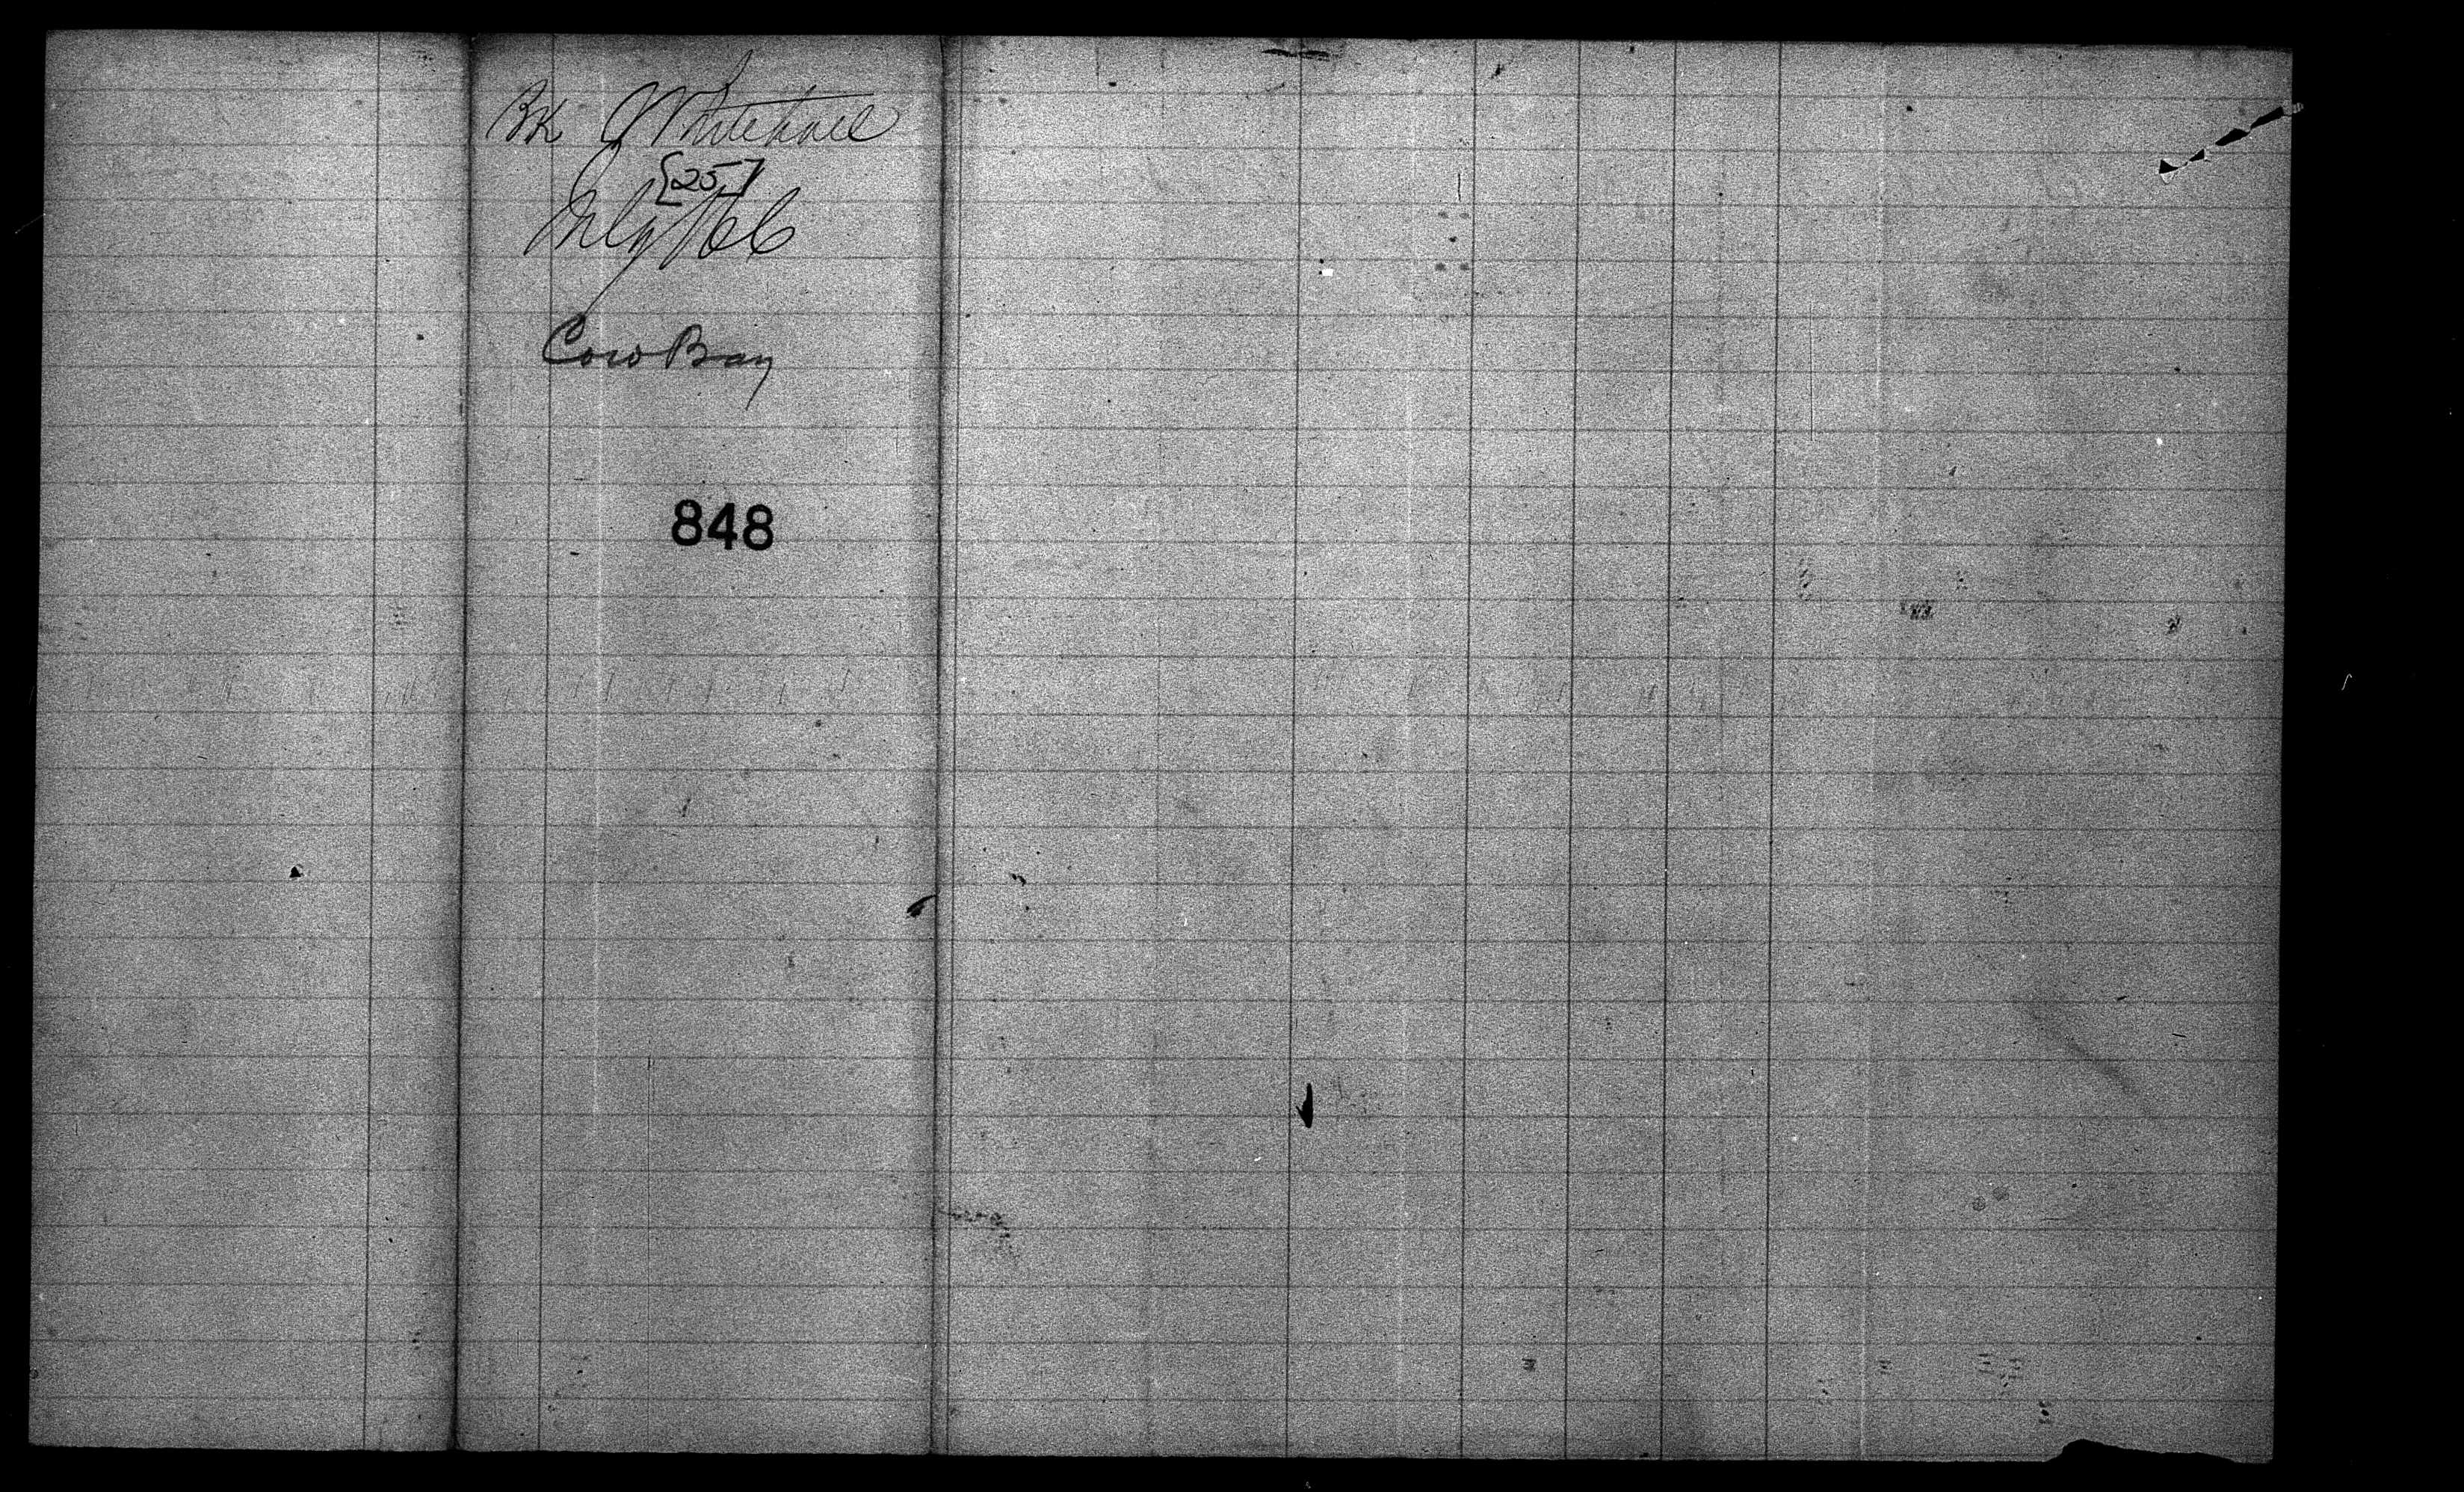 Bk Whitehall
[25]
July 16
Cow Bay
848